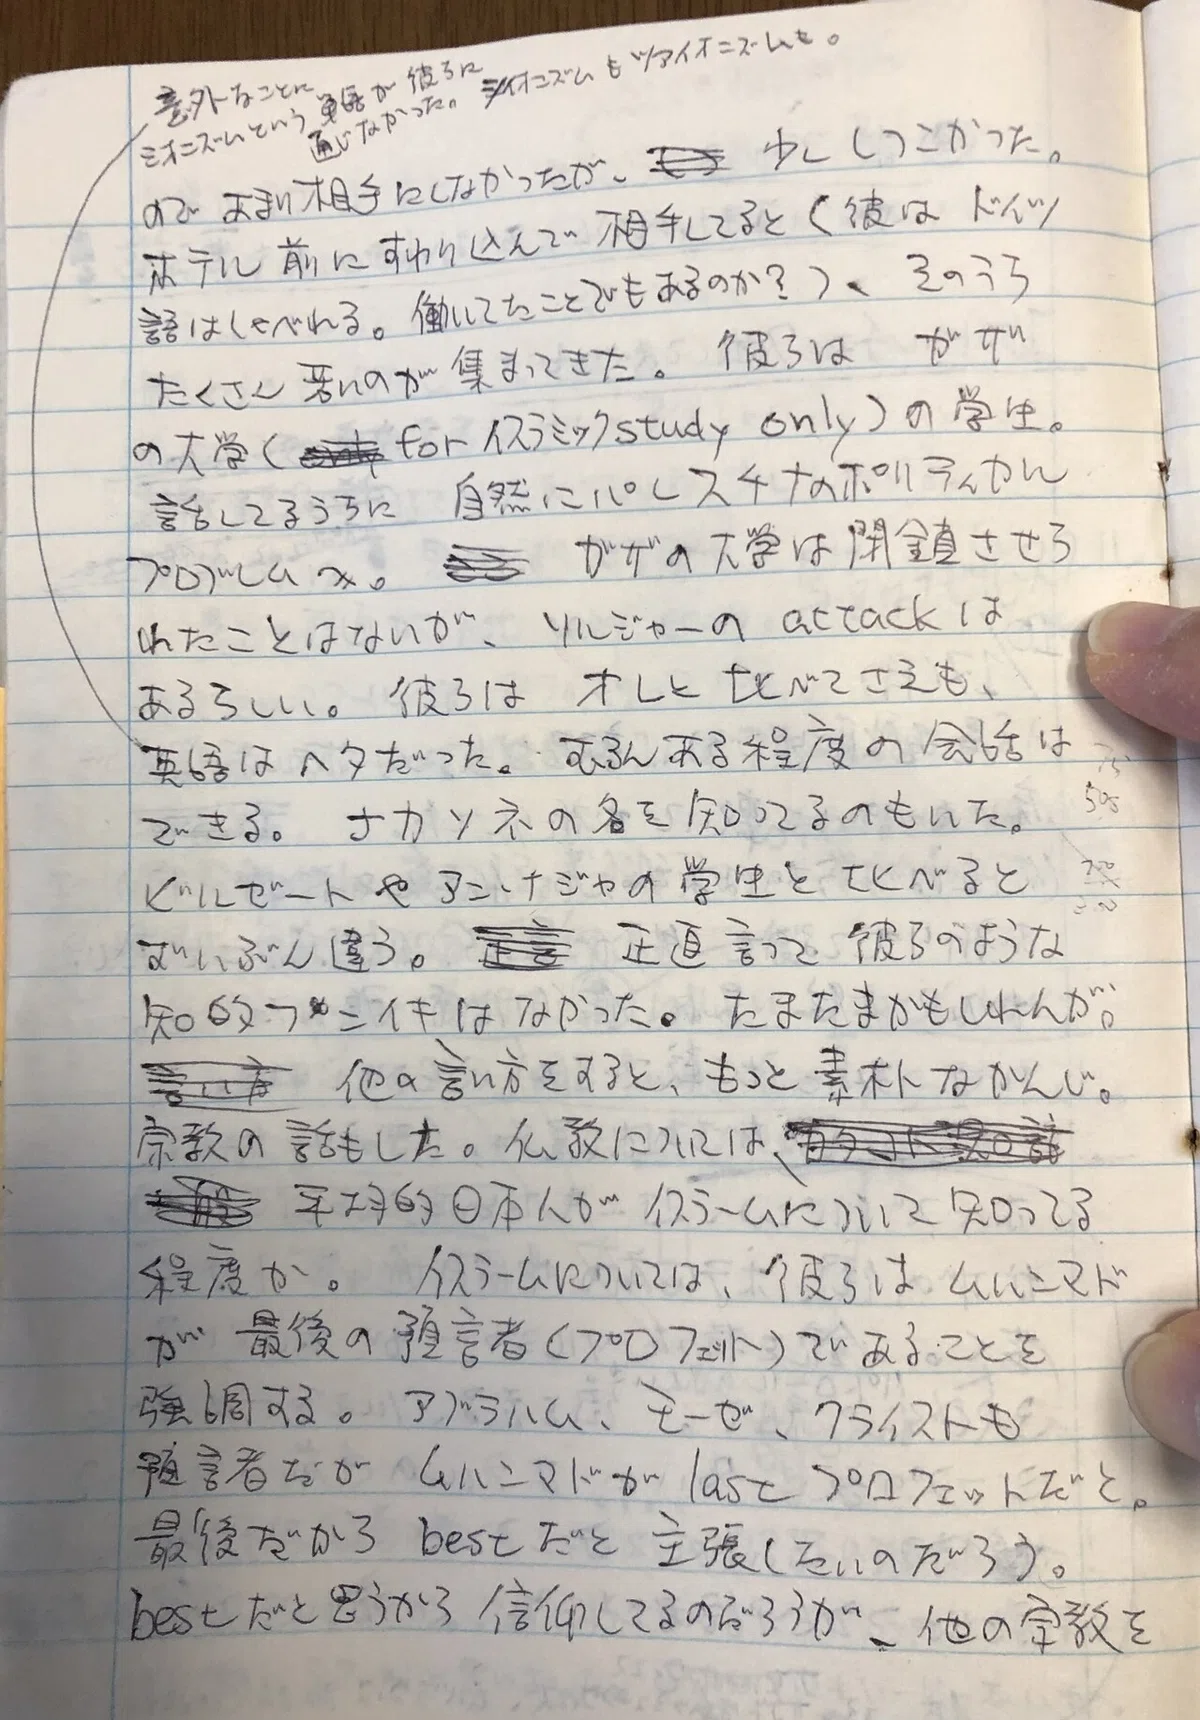 意外なことに
ミオニズムという単語が彼らに
通じなかった。シオニズムもツアイオニズムも。
少ししつこかった。
のであまり相手にしなかったが、
ホテル前にすわり込んで相手してると(彼はドイツ
語はしゃべれる。働いてたことでもあるのか?)、そのうち
たくさん若いのが集まってきた。彼らはガザ
の大学(for イスラミックstudy only)の学生。
話してるうちに自然にパレスチナのポリティカル
プロブレムへ。ガザの大学は閉鎖させら
れたことはないが、ソルジャーのattackは
あるらしい。彼らはオレと比べてさえも、
英語はヘタだった。むろんある程度の会話は
できる。ナカソネの名を知ってるのもいた。
ビルゼートやアンナジャの学生と比べると
ずいぶん違う。正直言って彼らのような
知的フンイキはなかった。たまたまかもしれんが。
他の言い方をすると、もっと素朴なかんじ。
宗教の話もした。仏教については、
平均的日本人がイスラームについて知ってる
程度か。イスラームについては、彼らはムハンマド
が最後の預言者(プロフェット)であることを
強調する。アブラハム、モーゼ、クライストも
預言者だがムハンマドがlastプロフェットだと。
最後だからbestだと主張したいのだろう。
bestだと思うから信仰してるのだろうが、他の宗教を